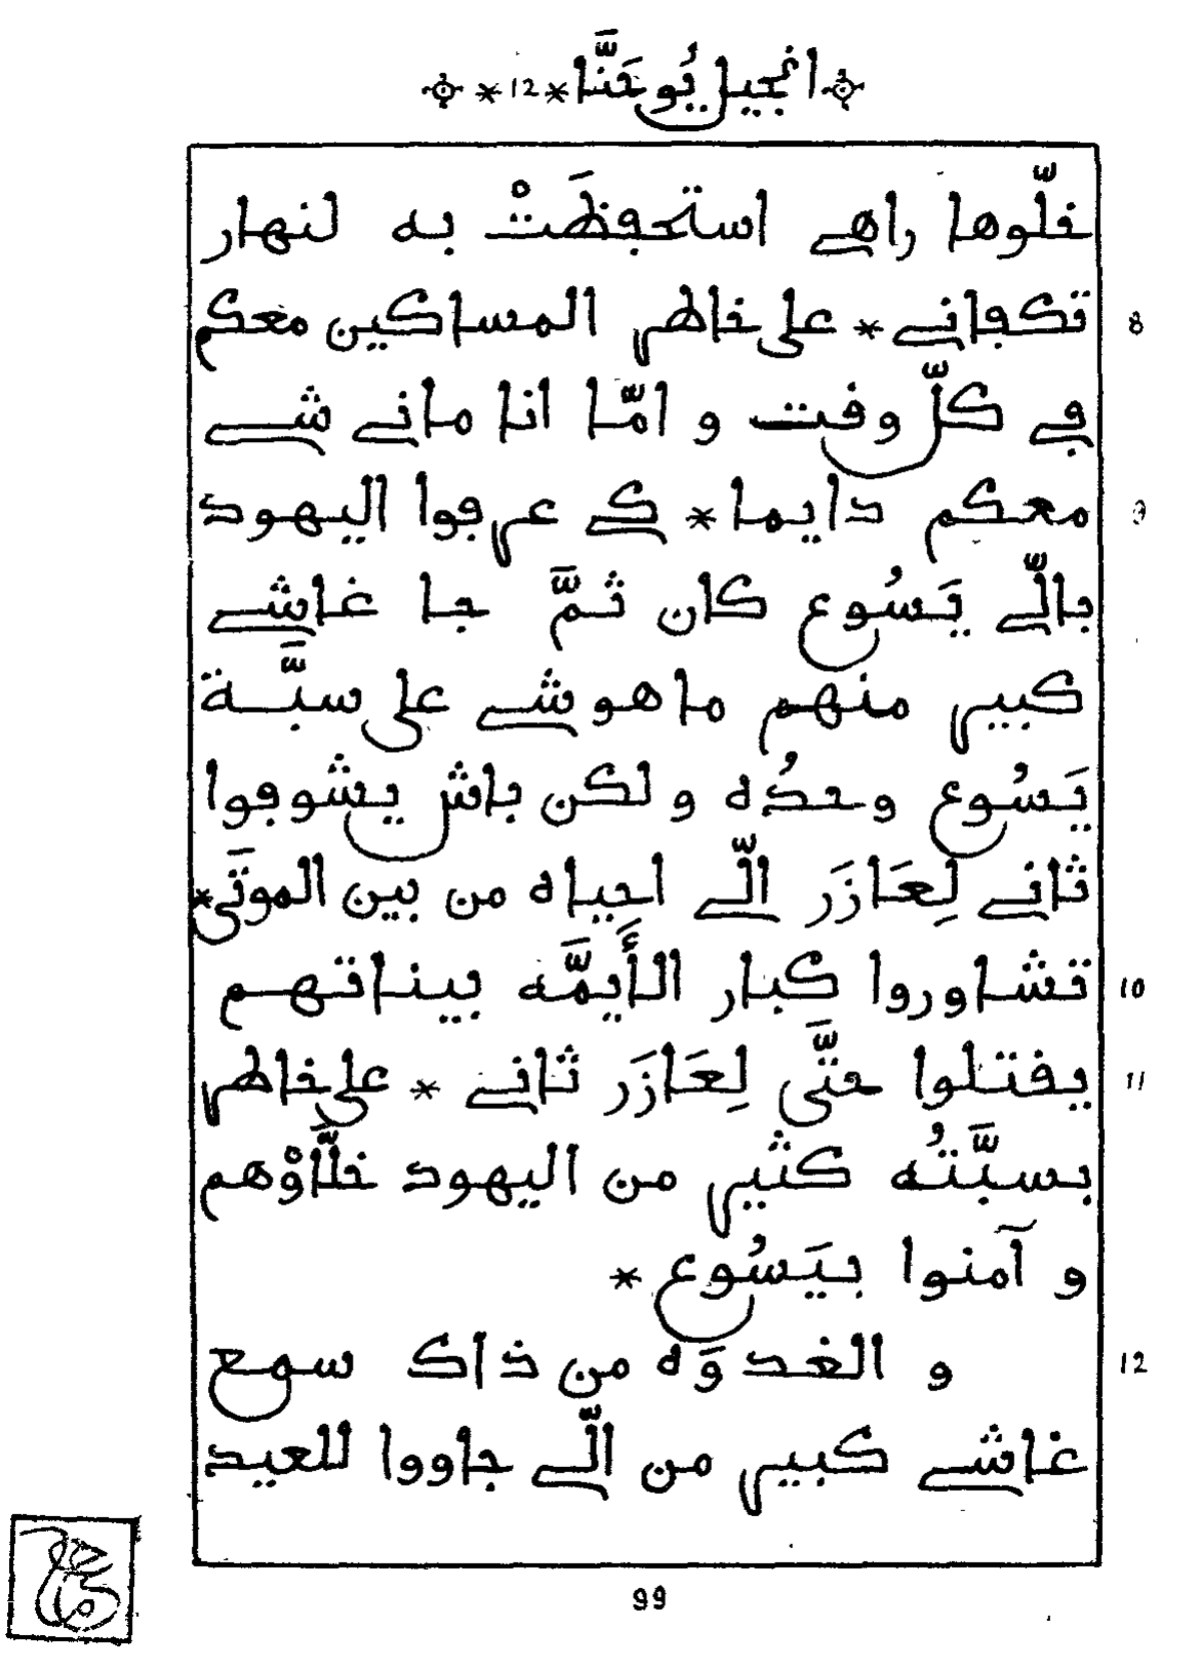 انجيل يُوحَنَّا * 12 *
خلّوها راهي استحفظَتْ به لنهار
8 تكفاني * على خاطر المساكين معكم
في كلّ وقت و امّا انا ماني شي
9 معكم دايما * كي عرفوا اليهود
بالّي يَسُوع كان ثمَّ جا غاشي
كبير منهم ماهوشي على سبَّة
يَسُوع وحدُه و لكن باش يشوفوا
ثاني لِعَازَر الّي احياه من بين الموتَى *
10 تشاوروا كبار الأَيمَّه بيناتهم
11 يقتلوا حتَّى لِعَازَر ثاني * على خاطر
بسبَّتُه كثير من اليهود خلَّاوْهم
و آمنوا بيَسُوع *
12 و الغدوَه من ذاك سمع
غاشي كبير من الّي جاووا للعيد
99